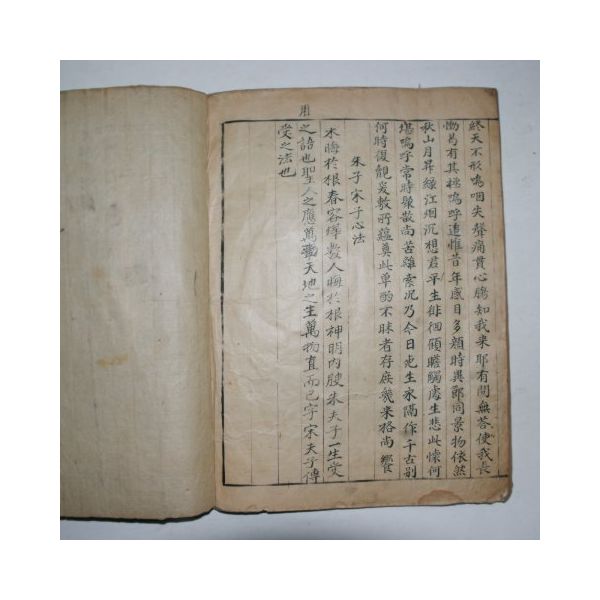 終天不形嗚咽失聲痛貫心膓知我來耶有問無荅使我長
慟曷有其極嗚呼追惟昔年感目多顔時異節同景物依然
秋山月昇綠江烟沉想君平生徘徊顧瞻觸處生悲此懷何
堪嗚呼常時聚散尚苦離索況乃今日死生永隔作千古別
何時復覩矣敷所蘊奠此單酌不昧者存庶幾來格尚饗
朱子宋子心法
木晦於根春容燁敷人晦於根神明內腴朱夫子一生受
用
之語也聖人之應萬事天地之生萬物直而已字宋夫子傳
受之法也